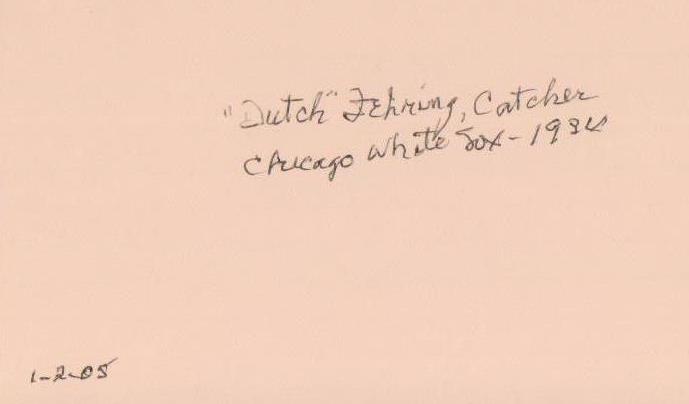 "Dutch" Fehring, Catcher
Chicago White Sox - 1934
1-2-05